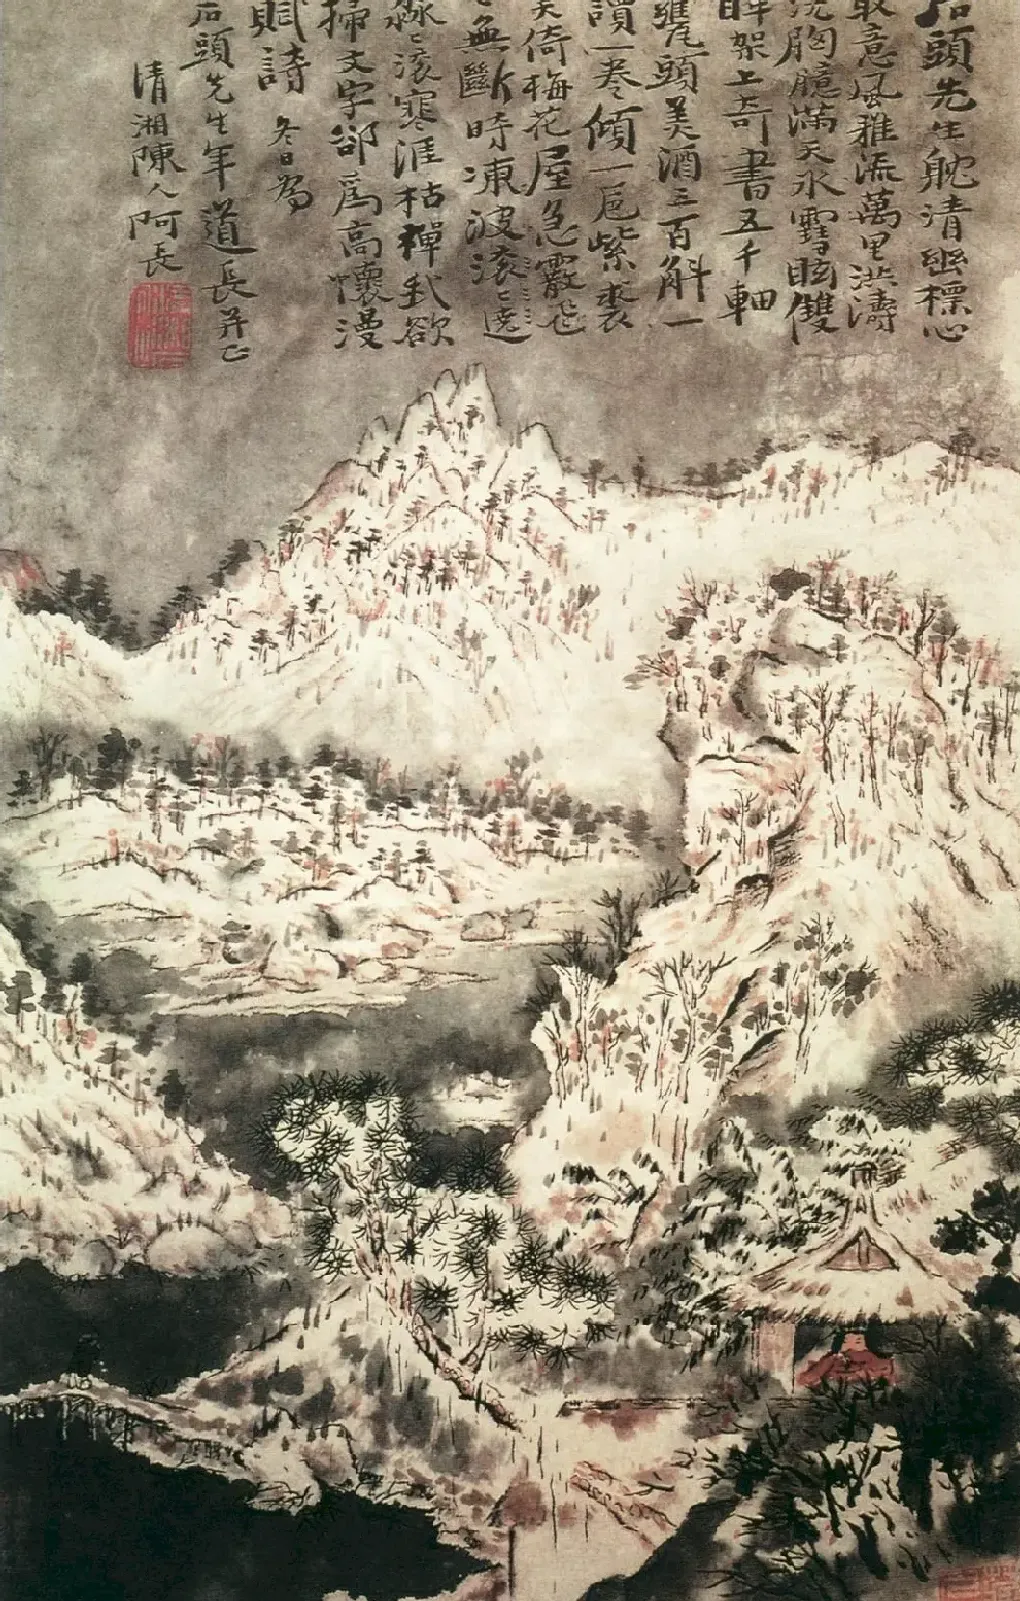 石頭先生耽清幽標心
取意風雅流萬里洪濤
洗胸臆滿天冰雪眩雙
眸架上奇書五千軸
甕頭美酒三百斛一
讀一卷傾一卮紫裘
笑倚梅花屋急霰飛
無斷時凍波滚〻遶
淼〻滚寒涯枯禪我欲
掃文字卻爲高懷漫
賦詩 冬日爲
石頭先生年道長并正
清湘陳人阿長